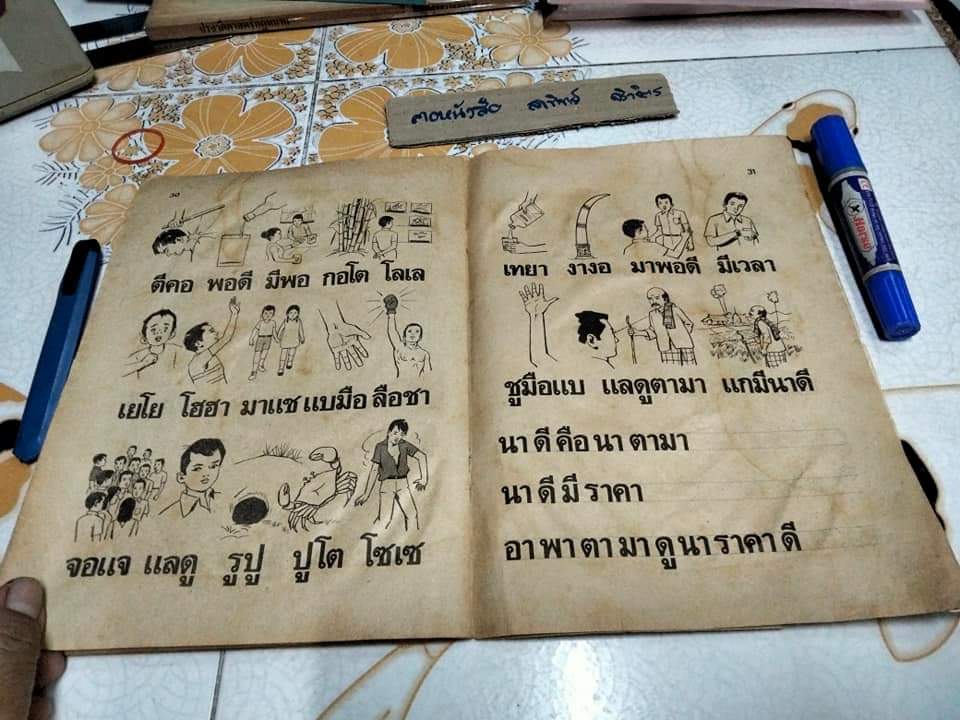 ประวัติศาสตร์
คอหนังสือ
30
ตีคอ พอดี มีพอ กอโต โลเล
เยโย โฮฮา มาแช แบมือ ลือชา
จอแจ แลดู รูปู ปูโต โซเซ
31
เทยา งางอ มาพอดี มีเวลา
ชูมือแบ แลดูตามา แกมีนาดี
นา ดี คือ นา ตามา
นา ดี มี ราคา
อา พา ตา มา ดู นา ราคา ดี
Horse